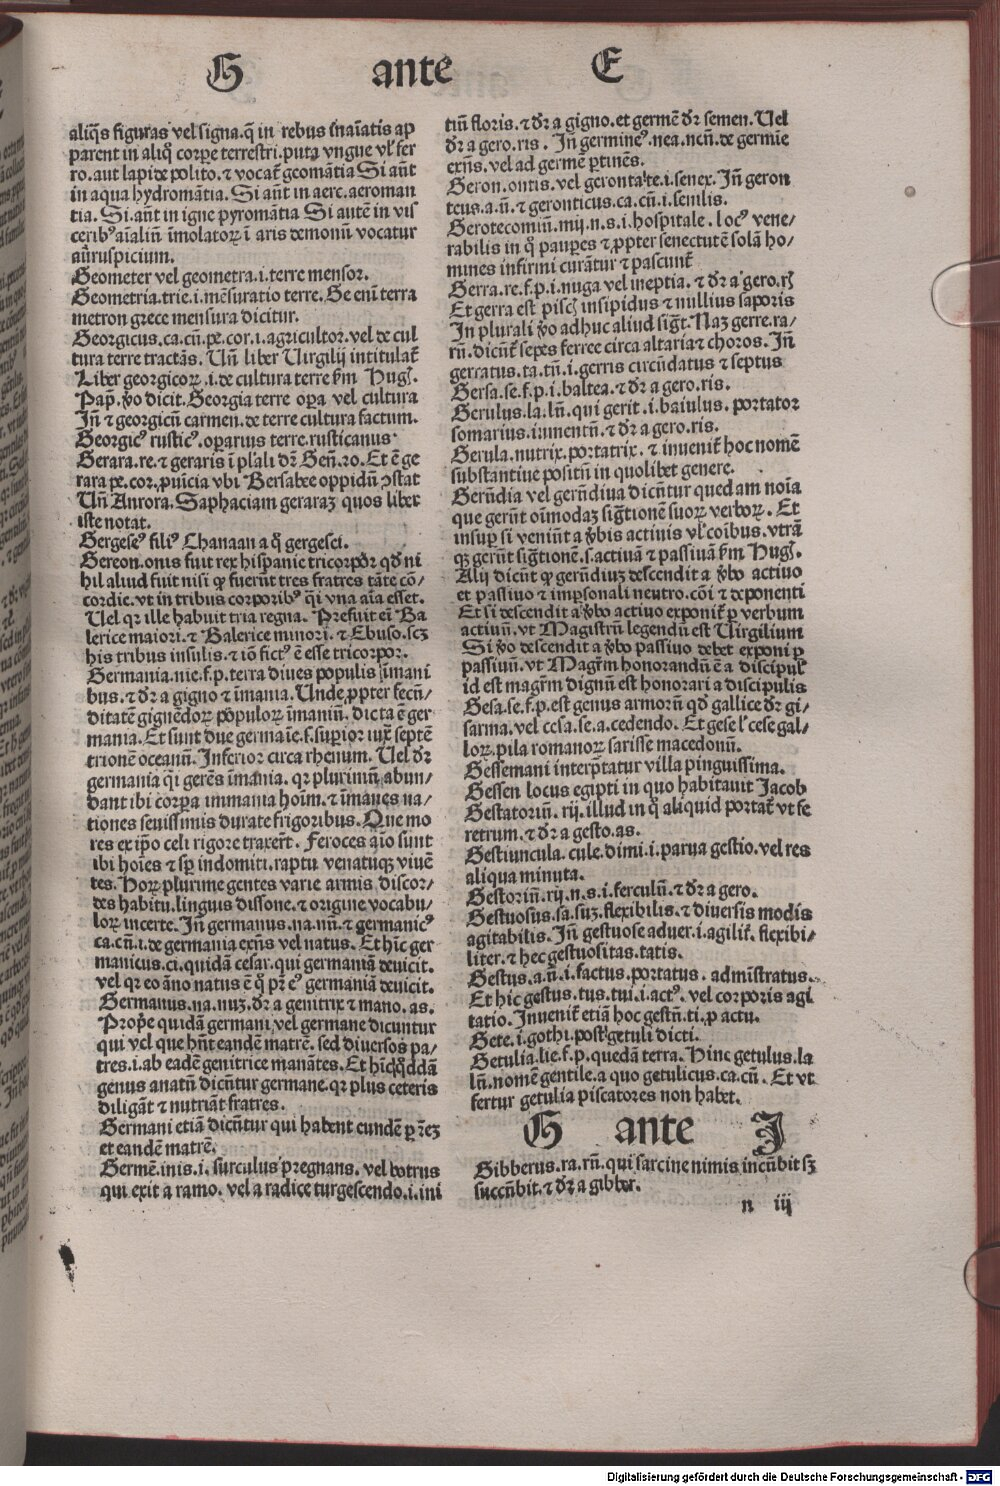 G ante E
aliq̄s figuras vel signa. q̄ in rebus īnaīatis ap
parent in aliq̊ corꝑe terrestri. puta vngue vl̓ fer
ro. aut lapide polito. ⁊ vocat̄ geomātia Si aūt
in aqua hydromātia. Si aūt in aere. aeroman
tia. Si. aūt in igne pyromātia Si autē in vis
ceribꝰ aīaliū īmolatoꝝ ī aris demonū vocatur
auruspicium.
Geometer vel geometra. i. terre mensor.
Geometria. trie. i. mēsuratio terre. Ge eni terra
metron grece mensura dicitur.
Georgicus. ca. cū. pe. cor. i. agricultor. vel de cul
tura terre tractās. Uñ liber Uirgilij intitulat̄
Liber georgicoꝝ. i. de cultura terre ẜm Hug̓.
Pap̄. ꝟo dicit. Georgia terre oꝑa vel cultura
Jñ ⁊ georgicū carmen. de terre cultura factum.
Georgicꝰ rusticꝰ. oꝑarius terre. rusticanus
Gerara. re. ⁊ geraris ī pl̓ali dr̄ Geñ. 20. Et ē ge
rara pe. cor. ꝓuīcia vbi Bersabee oppidū ↄstat
Uñ Aurora. Saphaciam geraraꝫ quos liber
iste notat.
Gergeseꝰ filiꝰ Chanaan a q̊ gergesei.
Gereon. onis fuit rex hispanie tricorꝑoꝛ qd̓ ni
hil aliud fuit nisi ꝙ fuerūt tres fratres tāte cō/
cordie. vt in tribus corporibꝰ q̄i vna aīa esset.
Uel qꝛ ille habuit tria regna. Prefuit eī Ba
lerice maiori. ⁊ Balerice minori. ⁊ Ebuso. scꝫ
his tribus insulis. ⁊ iō fictꝰ ē esse tricorpor.
Germania. nie. f. p. terra diues populis īmani
bus. ⁊ dr̄ a gigno ⁊ īmania. Unde ꝓpter fecū/
ditatē gignēdoꝝ pōpuloꝝ īmaniū. dicta ē ger
mania. Et sunt due germaīe. s. suꝑior iux̄ septē
trionē oceanū. Jnferior circa rhenum. Uel dr̄
germania q̄i gerēs īmania. qꝛ plurimū abun/
dant ibi corꝑa immania hoīm. ⁊ īmanes na/
tiones seuissimis durate frigoribus. Que mo
res ex ip̄o celi rigore traxer̄t. Feroces aīo sunt
ibi hoīes ⁊ sꝑ indomiti. raptu venatuqꝫ viuē
tes. Hoꝝ plurime gentes varie armis. discor/
des habitu. linguis dissone. ⁊ origine vocabu/
loꝝ incerte. Jñ germanus. na. nū. ⁊ germanicꝰ
ca. cū. i. de germania exn̄s vel natus. Et hīc ger
manicus. ci. quidā cesar. qui germaniā deuicit.
vel qꝛ eo āno natus ē q̊ pr̄ eꝰ germaniā deuicit.
Germanus. na. nuꝫ. dr̄ a genitrix ⁊ mano. as.
Proꝑe quidā germani vel germane dicuntur
qui vel que hn̄t eandē matrē. sed diuersos pa/
tres. i. ab eadē genitrice manātes. Et hīc qddā
genus anatū dicūtur germane. qꝛ plus ceteris
diligāt ⁊ nutriāt fratres.
Germani etiā dicūtur qui habent eundē pr̄eꝫ
et eandē matrē.
Germē. inis. i. surculus pregnans. vel botrus
qui exit a ramo. vel a radice turgescendo. i. ini
tiū floris. ⁊ dr̄ a gigno. et germē dr̄ semen. Uel
dr̄ a gero. ris. Jñ germineꝰ. nea. neū. de germīe
exn̄s. vel ad germē ꝑtinēs.
Geron. ontis. vel geronta. te. i. senex. Jñ geron
teus. a. ū. ⁊ geronticus. ca. cū. i. senilis.
Gerotecomiū. mij. n. s. i. hospitale. locꝰ vene/
rabilis in q̊ pauꝑes ⁊ ꝓpter senectutē solā ho/
mines infirmi curātur ⁊ pascunt̄
Gerra. re. f. p. i. nuga vel ineptia. ⁊ dr̄ a gero. rꝭ
Et gerra est piscꝭ insipidus ⁊ nullius saporis
Jn plurali ꝟo adhuc aliud sigt̄. Naꝫ gerre. ra/
rū. dicūt̄ sepes ferree circa altaria ⁊ choros. Jñ
gerratus. ta. tū. i. gerris circūdatus ⁊ septus
Gersa. se. f. p. i. baltea. ⁊ dr̄ a gero. ris.
Gerulus. la. lū. qui gerit. i. baiulus. portator
somarius. iumentū. ⁊ dr̄ a gero. ris.
Gerula. nutrix. portatrix. ⁊ inuenit̄ hoc nomē
substantiue positū in quolibet genere.
Gerūdia vel gerūdiua dicūtur quedam noīa
que gerūt oīmodaꝫ sigtionē suoꝝ verboꝝ. Et
insuꝑ si veniūt a ꝟbis actinis vl̓ coibus. vtrā
qꝫ gerūt sigtionē. s. actiuā ⁊ passiuā ẜm Hug̓.
Alij dicūt ꝙ gerūdiuꝫ descendit a ꝟbo actiuo
et passiuo ⁊ imꝑsonali neutro. cōi ⁊ deponenti
Et si descendit a ꝟbo actiuo exponit̄ ꝑ verbum
actiuū. vt Magistrū legendū est Uirgilium
Si ꝟo descendit a ꝟbo passiuo debet exponi ꝑ
passiuū. vt Magr̄m honorandū ē a discipul̓
id est magr̄m dignū est honorari a discipulis
Gesa. se. f. p. est genus armorū qd̓ gallice dr̄ gi/
sarma. vel cesa. se. a. cedendo. Et gese l̓ cese gal/
loꝝ. pila romanoꝝ sarisse macedonū.
Gessemani interp̄tatur villa pinguissima.
Gessen locus egipti in quo habitauit Jacob
Gestatoriū. rij. illud in q̊ aliquid portat̄ vt fe
retrum. ⁊ dr̄ a gesto. as.
Gestiuncula. cule. dimi. i. parua gestio. vel res
aliqua minuta.
Gestoriū. rij. n. s. i. ferculū. ⁊ dr̄ a gero.
Gestuosus. sa. suꝫ. flexibilis. ⁊ diuersis modis
agitabilis. Jñ gestuose aduer. i. agilit̄. flexibi/
liter. ⁊ hec gestuositas. tatis.
Gestus. a. ū. i. factus. portatus. admīstratus.
Et hic gestus. tus. tui. i. actꝰ. vel corporis agi
tatio. Jnuenit̄ etiā hoc gestū. ti. ꝓ actu.
Gete. i. gothi. post getuli dicti.
Getulia. lie. f. p. quedā terra. Hinc getulus. la
lū. nomē gentile. a quo getulicus. ca. cū. Et vt
fertur getulia piscatores non habet.
G ante J
Gibberus. ra. rū. qui sarcine nimis incūbit sꝫ
succūbit. ⁊ dr̄ a gibber.
n iij
Digitalisierung gefördert durch die Deutsche Forschungsgemeinschaft - DFG